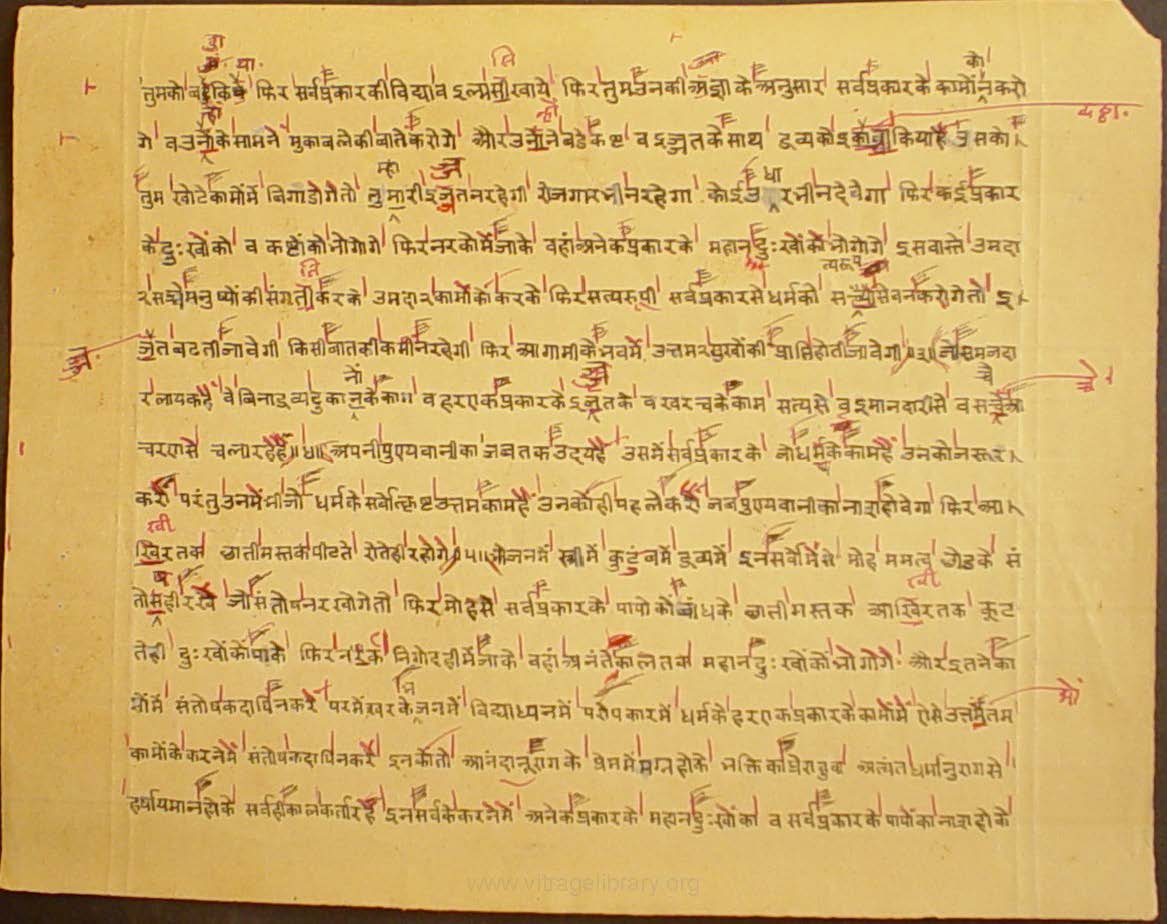 तुमको बडे किये फिर सर्व प्रकार की विद्या व इल्म सीखाये फिर तुम उनकी आज्ञा के अनुसार सर्व प्रकार के कामों न करो
गे व उनों के सामने मुकाबले की बातें करोगे और उनों ने बडे कष्ट व इज्जत के साथ द्रव्य को किया है उसको
तुम खोटे कामों में बिगाडोगे तो तुमारी इज्जत न रहेगी रोजगार भी न रहेगा कोई उधार भी न देवेगा फिर कई प्रकार
के दुःखों को व कष्टों को भोगोगे फिर नरकों में जाके वहां अनेक प्रकार के महान दुःखों को भोगोगे इस वास्ते उमदा
२ सच्चे मनुष्यों की संगती करके उमदा २ कामों को करके फिर सत्यरूपी सर्व प्रकार से धर्म को सेवन करोगे तो इ
ज्जत बढती जावेगी किसी बात की कमी न रहेगी फिर आगामी के भव में उत्तम २ सुखों की प्राप्ति होती जावेगी ॥३॥ जो समजदा
र लायक है वे बिना द्रव्य दुकान के काम व हरएक प्रकार के इज्जत के व खरच के काम सत्य से व इमानदारी से व सच्चे आ
चरण से चला रहे हैं ॥४॥ अपनी पुण्यवानी का जब तक उदय है उसमें सर्व प्रकार के जो धर्म के काम हैं उनको जरूर
करो परंतु उनमें भी जो धर्म के सर्वोत्कृष्ट उत्तम काम हैं उनको ही पहले करो जब पुण्यवानी का नाश होवेगा फिर आ
खिर तक छाती मस्तक पीटते रोते ही रहोगे ॥५॥ भोजन में स्त्री में कुटुंब में द्रव्य में इन सर्वों में से मोह ममत्व छोड के सं
तोस ही रखो जो संतोष न रखोगे तो फिर मोह से सर्व प्रकार के पापों को बांध के छाती मस्तक आखिर तक कूट
ते ही दुःखों को पाके फिर नर्क निगोद ही में जाके वहां अनंते काल तक महान दुःखों को भोगोगे और इतने का
मों में संतोष कदापि न करे परमेश्वर के भजन में विद्याध्यन में परोपकार में धर्म के हरएक प्रकार के कामों में ऐसे उत्तमोत्तम
कामों के करने में संतोष कदापि न करे इनको तो आनंदानुराग के प्रेम में मग्न होके भक्ति का अत्यंत धर्मानुराग से
हर्षायमान होके सर्व ही काल कर्ता रहे इन सर्व के करने में अनेक प्रकार के महान दुःखों का व सर्व प्रकार के पापों का नाश होके
www.vitragelibrary.org